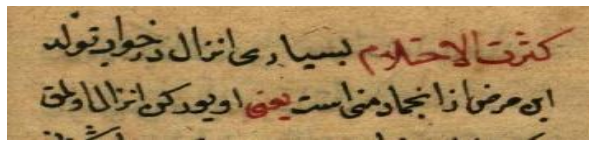 كثرت الاحتلام بسیاری انزال در خواب تولد
این مرض از انجماد منی است یعنی اویورکن انزال اولمق